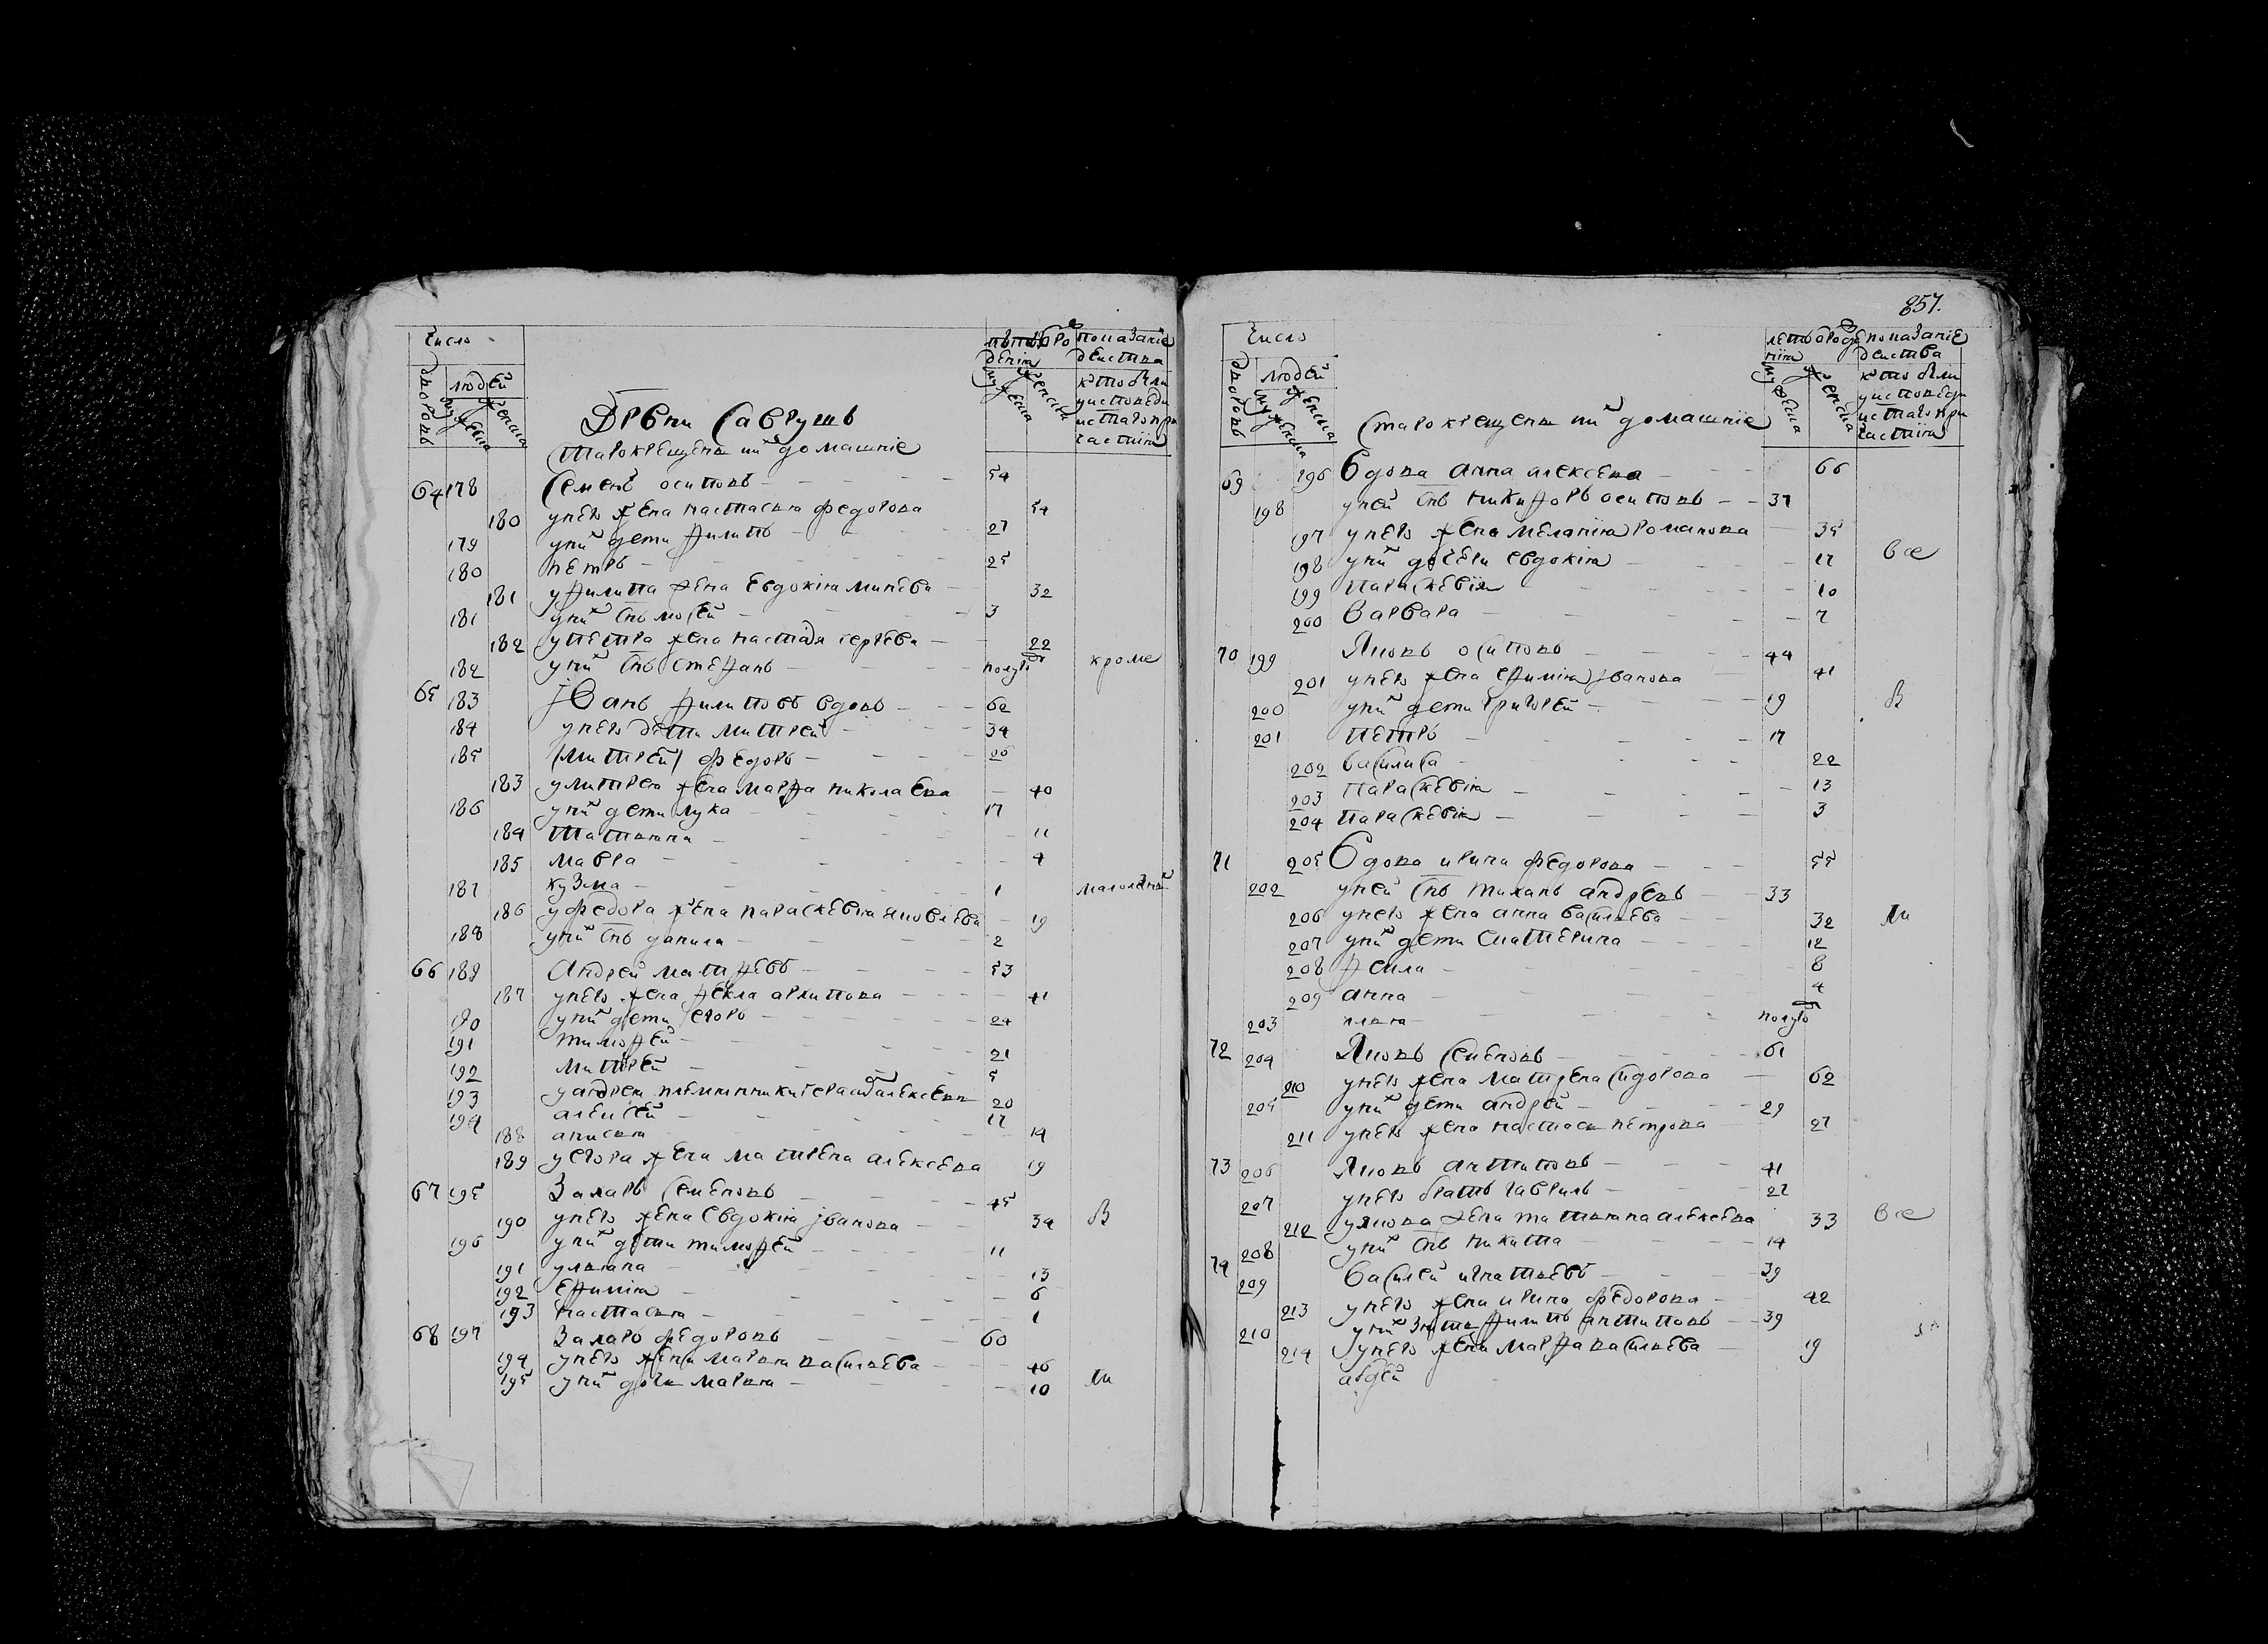 Число
дворовъ
людей
мужеска
женска
лѣтъ отъ рож
денiя
мужеска
женска
показанiе
действа
кто были
у исповеди
и стаго при
частiя
Дрвни Саврушъ
Старокрещены и ихъ домашнiе
64 178 Семенъ осиповъ 54
180 у него жена настасья федорова 54
179 у нихъ дети филипъ 27
180 петръ 25
181 у филипа жена Евдокiя минеева 32
181 у нихъ снъ мосей 3
182 у петра жена настася сергеева 22
182 у нихъ снъ стефанъ полуго кроме
65 183 Iванъ филиповъ вдовъ 62
184 у него дети митрей 34
185 (митрей) федоръ 26
183 у митрея жена марфа николаева 40
186 у нихъ дети лука 17
184 татьяна 11
185 мавра 4
187 кузма 1 малолетный
186 у федора жена параскевiя яковлева 19
188 у нихъ снъ данила 2
66 189 Андрей матфѣевъ 53
187 у него жена фекла архипова 41
190 у нихъ дети егоръ 24
191 тимофей 21
192 митрей 5
193 у андрея племянники герасимъ алексеевъ 20
194 алексей 17
188 анисья 14
189 у егора жена матрена алексеева 19
67 195 Захаръ семеновъ 45
190 у него жена Евдокiя iванова 34 в
196 у нихъ дети тимофей 11
191 ульяна 13
192 ефимiя 6
193 настасья 1
68 197 Захаръ федоровъ 60
194 у него жена марья васильева 46
195 у нихъ дочь марья 10 ли
857.
Число
дворовъ
людей
мужеска
женска
летъ от рожде
нiя
мужеска
женска
показанiе
действа
кто были
у исповеди
и стаго при
частiя
Старокрещены и ихъ домашнiе
69 196 Вдова анна алексеева 66
198 у ней снъ никифоръ осиповъ 37
197 у него жена меланiя романова 35
198 у нихъ дочери евдокiя 17 все
199 параскевiя 10
200 варвара 7
70 199 Яковъ осиповъ 44
201 у него жена ефимiя iванова 41
200 у нихъ дети григорей 19 в
201 петръ 17
202 василиса 22
203 параскевiя 13
204 параскевiя 3
71 205 Вдова ирина федорова 55
202 у ней снъ тиханъ андреевъ 33
206 у него жена анна васильева 32 ли
207 у нихъ дети екатерина 12
208 фекла 8
209 анна 4
203 илья полуго
72 204 Яковъ семеновъ 61
210 у него жена матрена сидорова 62
205 у нихъ дети андрей 29
211 у него жена настася петрова 27
73 206 Яковъ антиповъ 41
207 у него братъ гаврилъ 27
212 у якова жена татьяна алексеева 33 все
208 у нихъ снъ никита 14
74 209 Василей игнатьевъ 39
213 у него жена ирина федорова 42
210 у нихъ зять филипъ антиповъ 39
214 у него жена марфа васильева 19
авдей